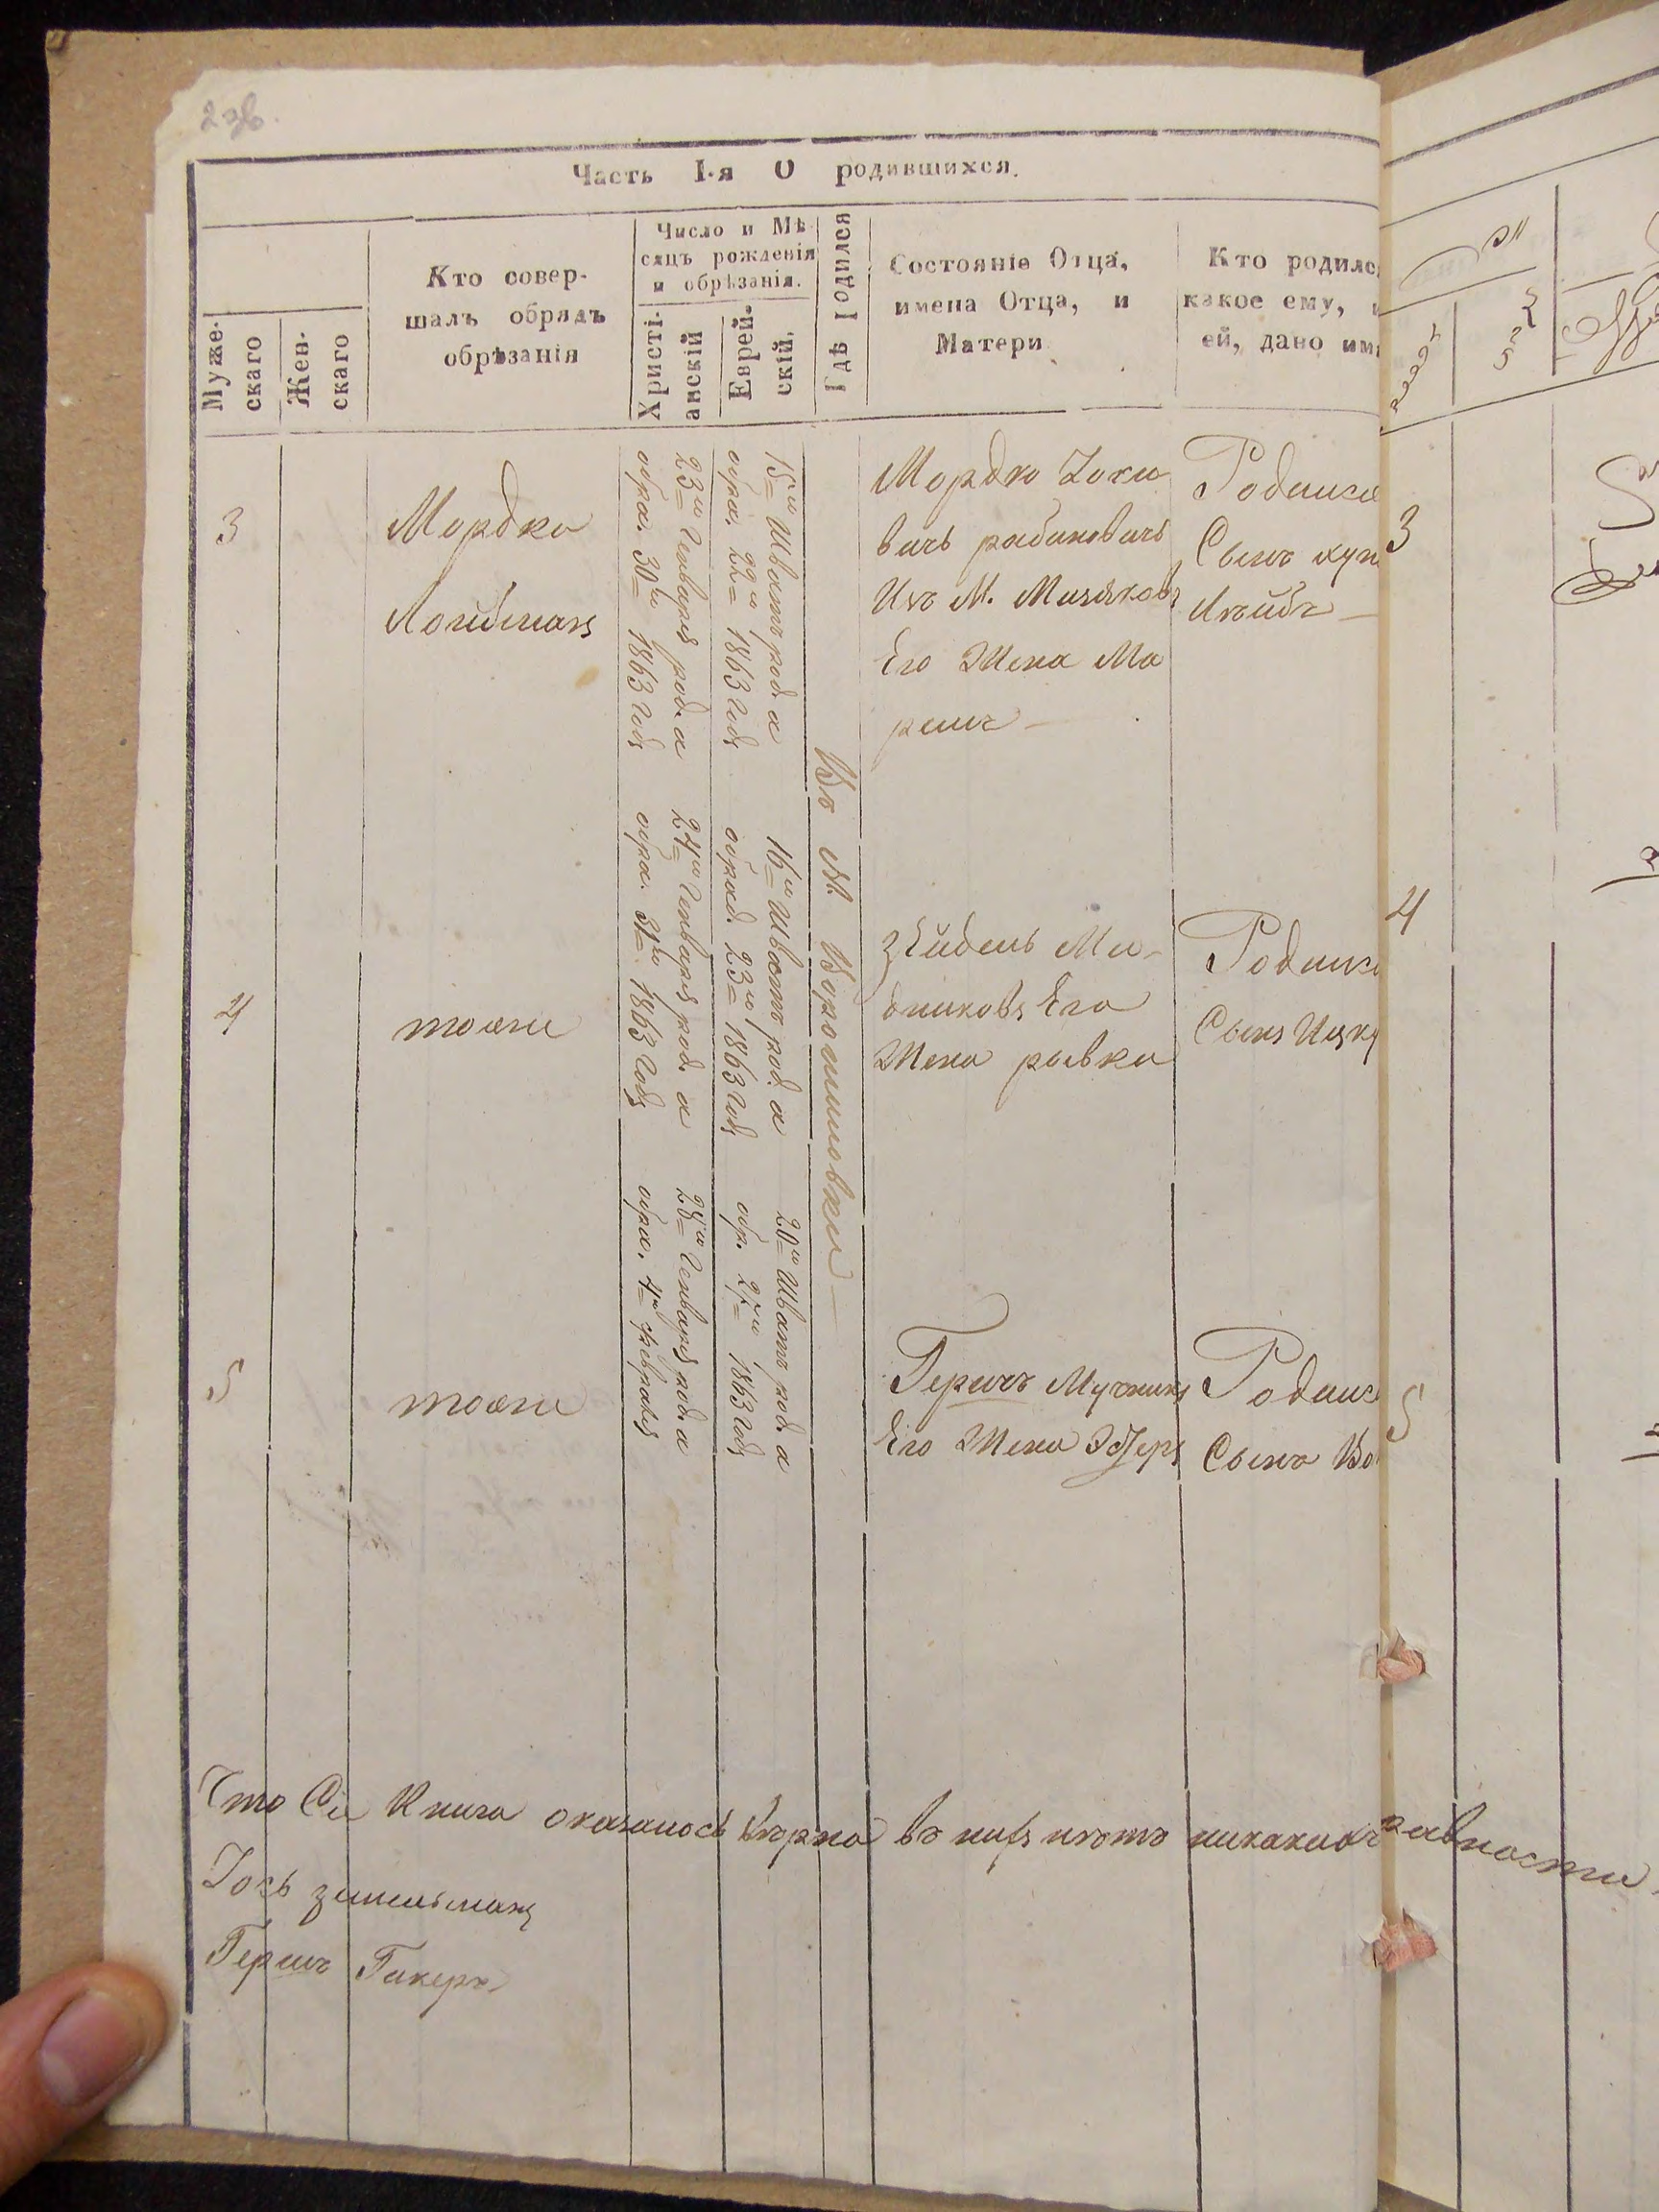 Часть I-я О родившихся.
Муже-
скаго
Жен-
скаго
Кто совер-
шалъ обрядъ
обрѣзанія
Число и Мѣ-
сяцъ рожденія
и обрѣзанія.
Христі-
анскій
Еврей-
скій.
Гдѣ Родился
Состояніе Отца,
имена Отца, и
Матери
Кто родилс
какое ему, и
ей, дано им
3
Мордко
Лойбман
23 Генваря род. а
обра. 30 1863 Года
15 Шватъ род. а
обра. 22 1863 Года
Въ М. Ворошиловки
Мордко Іоси
вичь рабиновичь
Изъ М. Мизякова
Его Жена Ма
Родился
Сынъ
3
4
тоже
24 Генваря род. а
обра. 31 1863 Года
16 Шватъ род. а
обрад. 23 1863 Года
Зейдель Ми-
дников Его
Жена рывка
Родился
Сынъ Ицко
4
5
тоже
28 Генваря род. а
обра. 4 февраля
20 Шватъ род. а
обр. 27 1863 Года
Гершъ Мучник
Его Жена Эстеръ
Родился
Сынъ Во
5
Что Сія Книга оказалось вѣрна въ ней нѣтъ никакихъ
Іось зинельман
Гершъ Гикеръ